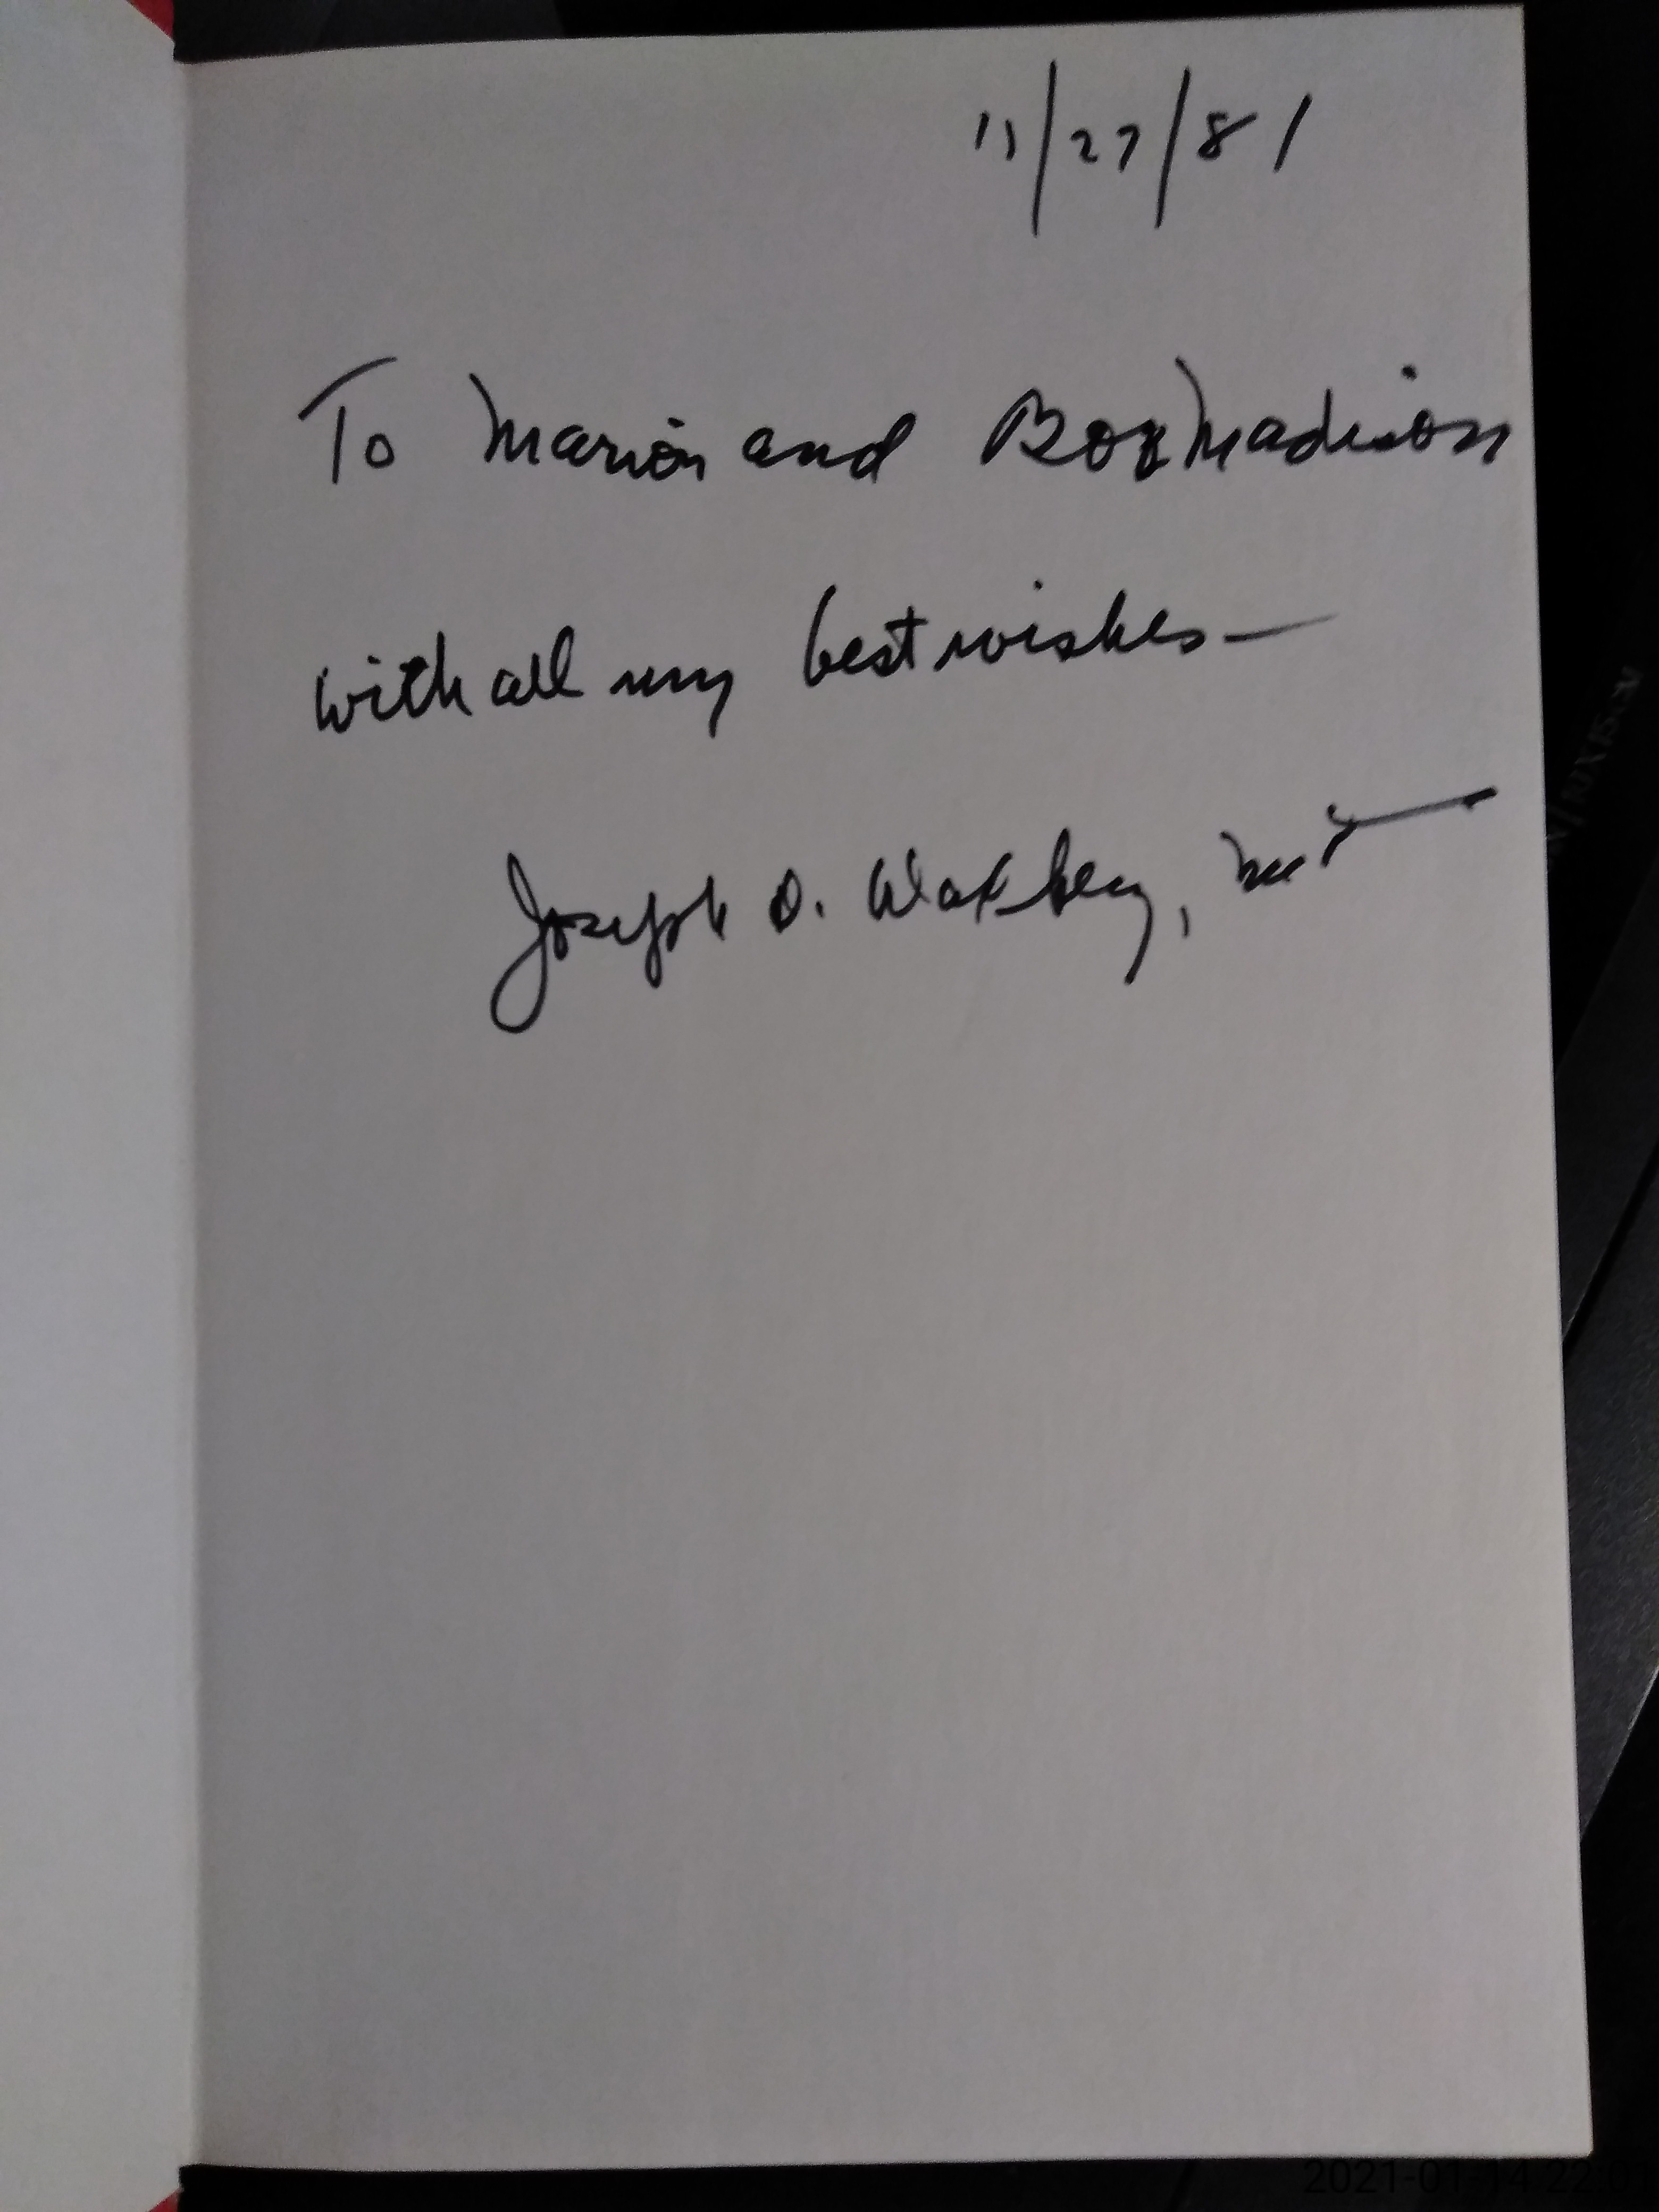 11/27/81
To Marion and Bob Madison
with all my best wishes—
Joseph D. Waxberg, M.D.
2021-01-14 22:01